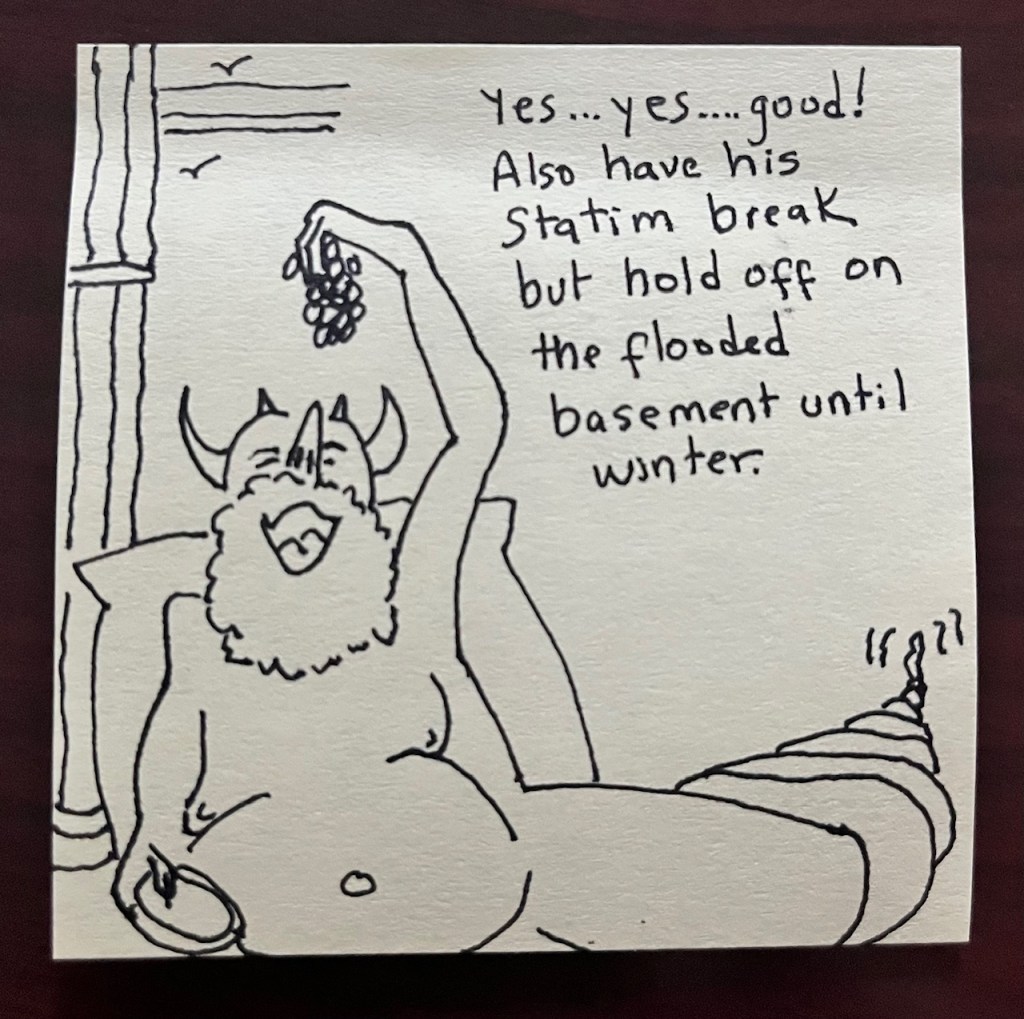 Yes... yes.... good!
Also have his
Statim break
but hold off on
the flooded
basement until
winter.